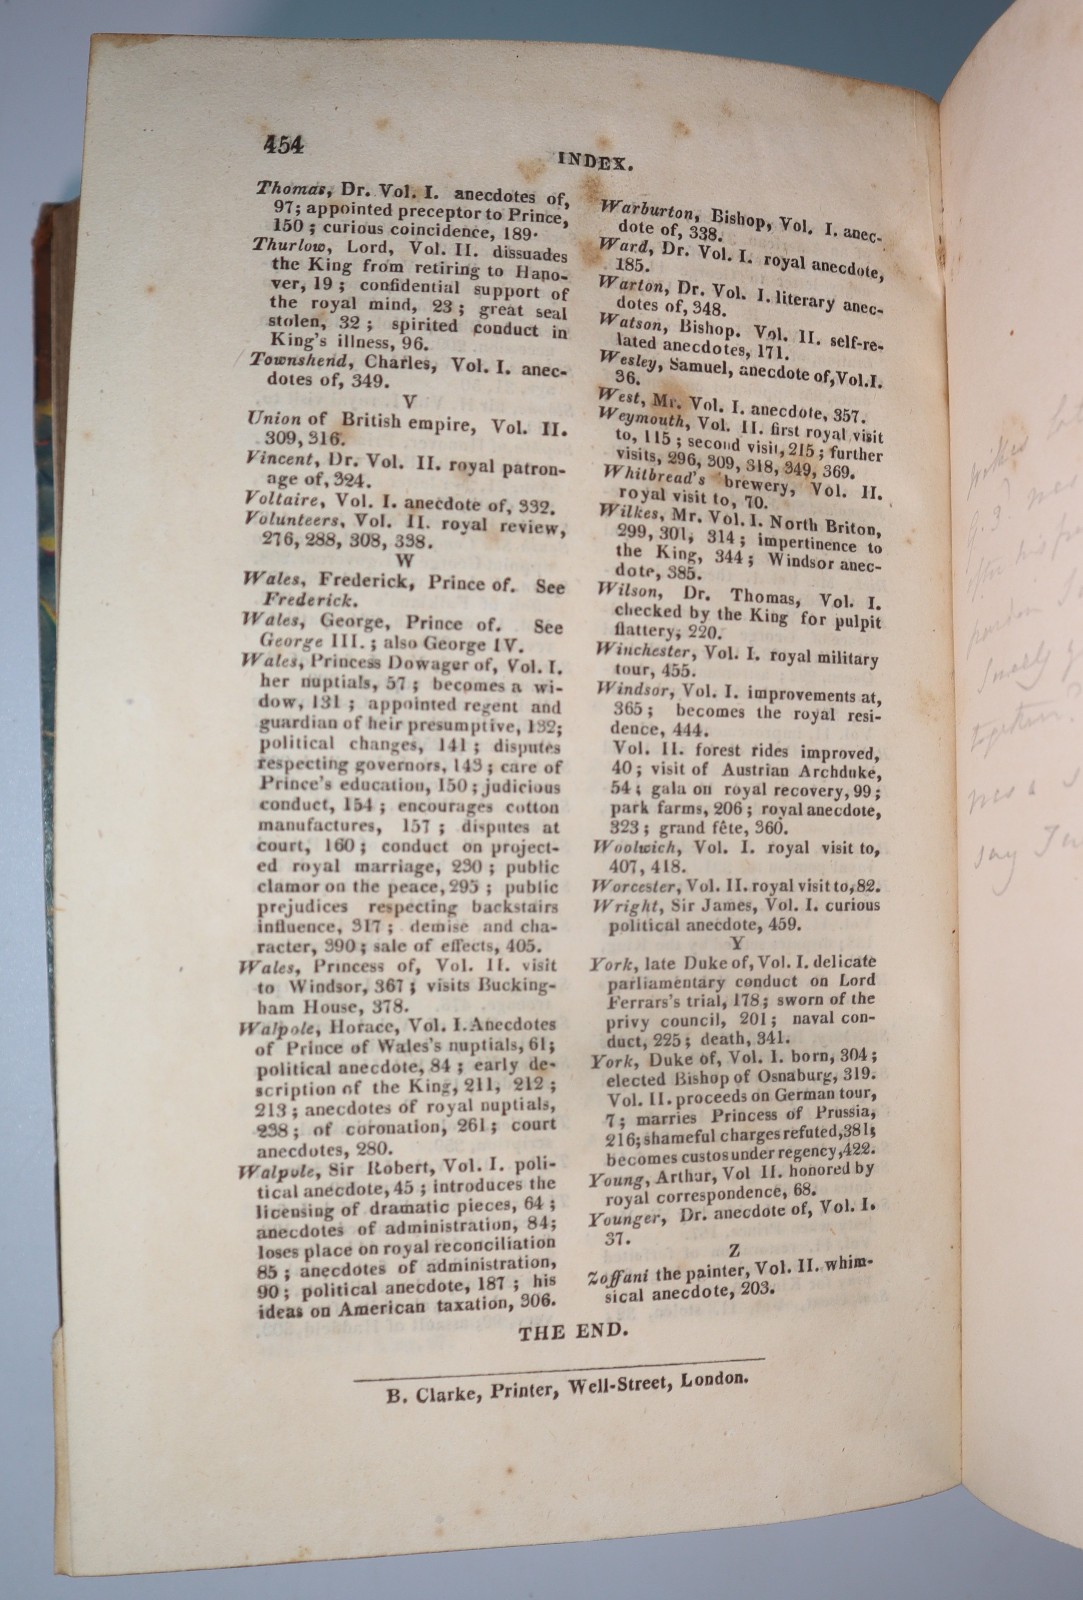 454
INDEX.
Thomas, Dr. Vol. I. anecdotes of,
97; appointed preceptor to Prince,
150 ; curious coincidence, 189.
Thurlow, Lord, Vol. II. dissuades
the King from retiring to Hano-
ver, 19 ; confidential support of
the royal mind, 23 ; great seal
stolen, 32 ; spirited conduct in
King's illness, 96.
Townshend, Charles, Vol. I. anec-
dotes of, 349.
V
Union of British empire, Vol. II.
309, 316.
Vincent, Dr. Vol. II. royal patron-
age of, 324.
Voltaire, Vol. I. anecdote of, 332.
Volunteers, Vol. II. royal review,
276, 288, 308, 338.
W
Wales, Frederick, Prince of. See
Frederick.
Wales, George, Prince of. See
George III. ; also George IV.
Wales, Princess Dowager of, Vol. I.
her nuptials, 57 ; becomes a wi-
dow, 131 ; appointed regent and
guardian of heir presumptive, 132;
political changes, 141 ; disputes
respecting governors, 143 ; care of
Prince's education, 150 ; judicious
conduct, 154 ; encourages cotton
manufactures, 157 ; disputes at
court, 160 ; conduct on project-
ed royal marriage, 230 ; public
clamor on the peace, 295 ; public
prejudices respecting backstairs
influence, 317 ; demise and cha-
racter, 390 ; sale of effects, 405.
Wales, Princess of, Vol. II. visit
to Windsor, 367 ; visits Bucking-
ham House, 378.
Walpole, Horace, Vol. I. Anecdotes
of Prince of Wales's nuptials, 61;
political anecdote, 84 ; early de-
scription of the King, 211, 212 ;
213 ; anecdotes of royal nuptials,
238; of coronation, 261 ; court
anecdotes, 280.
Walpole, Sir Robert, Vol. I. poli-
tical anecdote, 45 ; introduces the
licensing of dramatic pieces, 64 ;
anecdotes of administration, 84;
loses place on royal reconciliation
85 ; anecdotes of administration,
90 ; political anecdote, 187 ; his
ideas on American taxation, 306.
Warburton, Bishop, Vol. I. anec-
dote of, 338.
Ward, Dr. Vol. I. royal anecdote,
185.
Warton, Dr. Vol. I. literary anec-
dotes of, 348.
Watson, Bishop. Vol. II. self-re-
lated anecdotes, 171.
Wesley, Samuel, anecdote of, Vol. I.
36.
West, Mr. Vol. I. anecdote, 357.
Weymouth, Vol. II. first royal visit
to, 115 ; second visit, 215 ; further
visits, 296, 309, 318, 349, 369.
Whitbread's brewery, Vol. II.
royal visit to, 70.
Wilkes, Mr. Vol. I. North Briton,
299, 301, 314 ; impertinence to
the King, 344 ; Windsor anec-
dote, 385.
Wilson, Dr. Thomas, Vol. I.
checked by the King for pulpit
flattery, 220.
Winchester, Vol. I. royal military
tour, 455.
Windsor, Vol. I. improvements at,
365 ; becomes the royal resi-
dence, 444.
Vol. II. forest rides improved,
40 ; visit of Austrian Archduke,
54 ; gala on royal recovery, 99 ;
park farms, 206 ; royal anecdote,
323 ; grand fête, 360.
Woolwich, Vol. I. royal visit to,
407, 418.
Worcester, Vol. II. royal visit to, 82.
Wright, Sir James, Vol. I. curious
political anecdote, 459.
Y
York, late Duke of, Vol. I. delicate
parliamentary conduct on Lord
Ferrars's trial, 178 ; sworn of the
privy council, 201 ; naval con-
duct, 225 ; death, 341.
York, Duke of, Vol. I. born, 304 ;
elected Bishop of Osnaburg, 319.
Vol. II. proceeds on German tour,
7 ; marries Princess of Prussia,
216; shameful charges refuted, 381;
becomes custos under regency, 422.
Young, Arthur, Vol II. honored by
royal correspondence, 68.
Younger, Dr. anecdote of, Vol. I.
37.
Z
Zoffani the painter, Vol. II. whim-
sical anecdote, 203.
THE END.
B. Clarke, Printer, Well-Street, London.